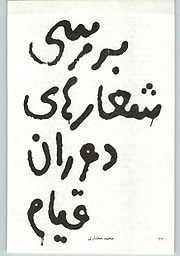 بررسی
شعارهای
دوران
قیام
محمد مختاری